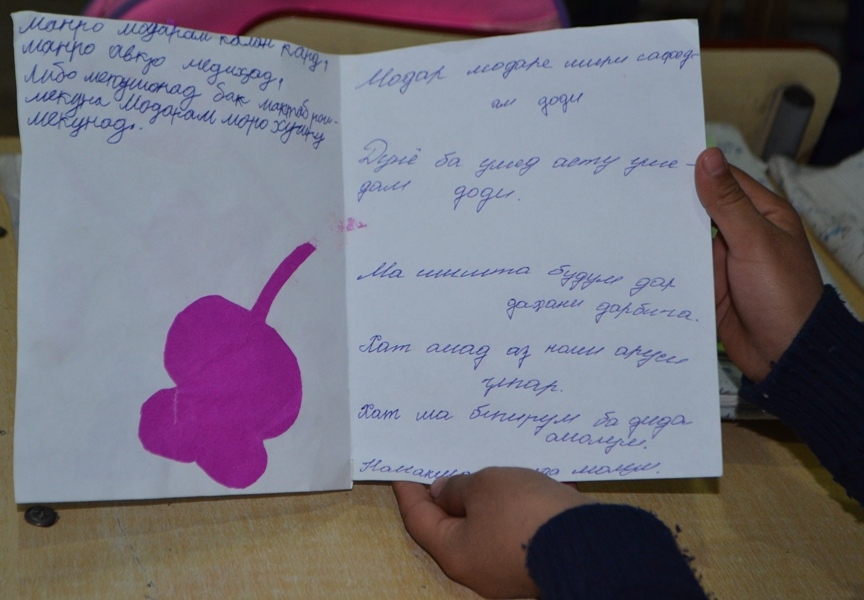 манро модарам калон кард,
манро авкро медихад,
либо мепушонад бак мактаб раи-
мекуна Модарам моро хунук
мекунад.
Модар модаре шири сафед-
ам доди
Дунё ба умед асту уме-
дам доди.
Ма шишта будум дар
дахани дарбича.
Хат омад аз номи аруси
Хат ма бигирум ба дида
молум.
молум.